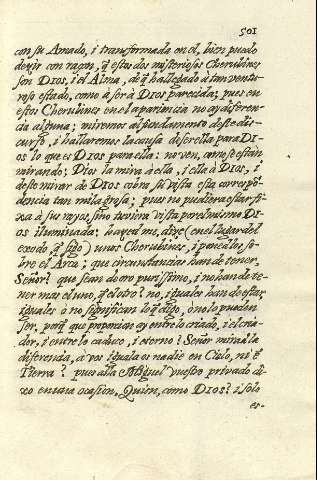 501
con su Amado, i transformada en el, bien puedo
dezir con razon, q̃ estos dos misteriosos Cherubines
son Dios, i el Alma, de q̃ ha llegado à tan ventu-
roso estado, como à ser à Dios parecida; pues en
estos Cherubines en el apariencia no ay diferen-
cia alguna; miremos al fundamento deste dis-
curso, i hallaremos la causa de ser ella para Di-
os lo que es Dios para ella: no ven, como se estàn
mirando; Dios la mira à ella, i ella à Dios, i
deste mirar de Dios cobra su vista esta correspõ-
dencia tan milagrosa; pues no pudiera estar fi-
xa à sus rayos, sino tuviera vista por el mismo Di-
os iluminada: hazed me, dize (en el lugar del
exodo q̃ sigo) unos Cherubines, i ponedlos so-
bre el Arca; que circunstancias han de tener,
Señor? que sean de oro purissimo, i no han de te-
ner mas el uno, q̃ el otro? no, iguales han de estar,
iguales ò no significan lo q̃ digo, ò no lo pueden
ser. porq̃ que proporcion ay entre lo criado, i el cria-
dor, i entre lo caduco, i eterno? Señor mirad la
diferencia, à vos iguala os nadie en Cielo, ni ẽ
Tierra? pues allà Miguel vuestro privado di-
xo en una ocasion, Quien, como Dios? i solo
es-